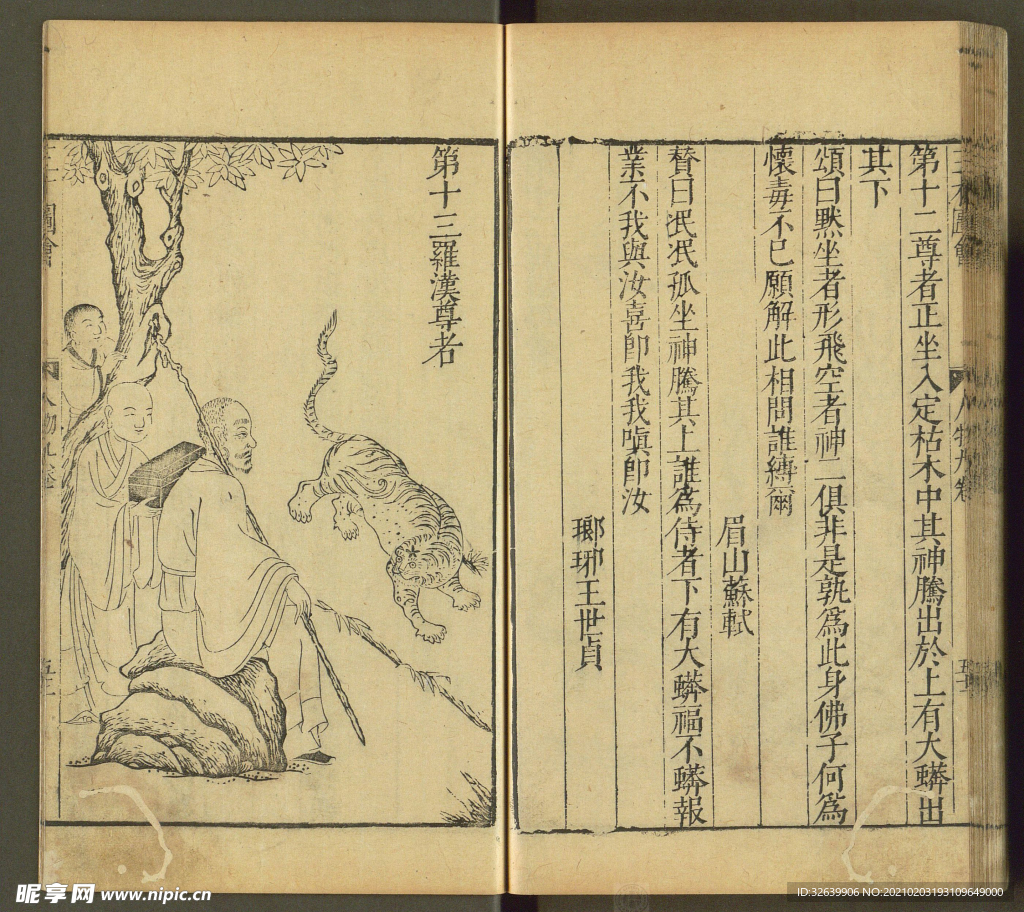 三才圖會
人物九卷
第十二尊者正坐入定枯木中其神騰出於上有大蟒出
其下
頌曰默坐者形飛空者神二俱非是孰為此身佛子何為
懷毒不已願解此相問誰縛爾
眉山蘇軾
贊曰泯泯孤坐神騰其上誰為侍者下有大蟒福不蟒報
業不我與汝喜卽我我嗔卽汝
瑯琊王世貞
第十三羅漢尊者
圖會
人物九卷
昵享网 www.nipic.cn
ID:32639906 NO:20210203193109649000